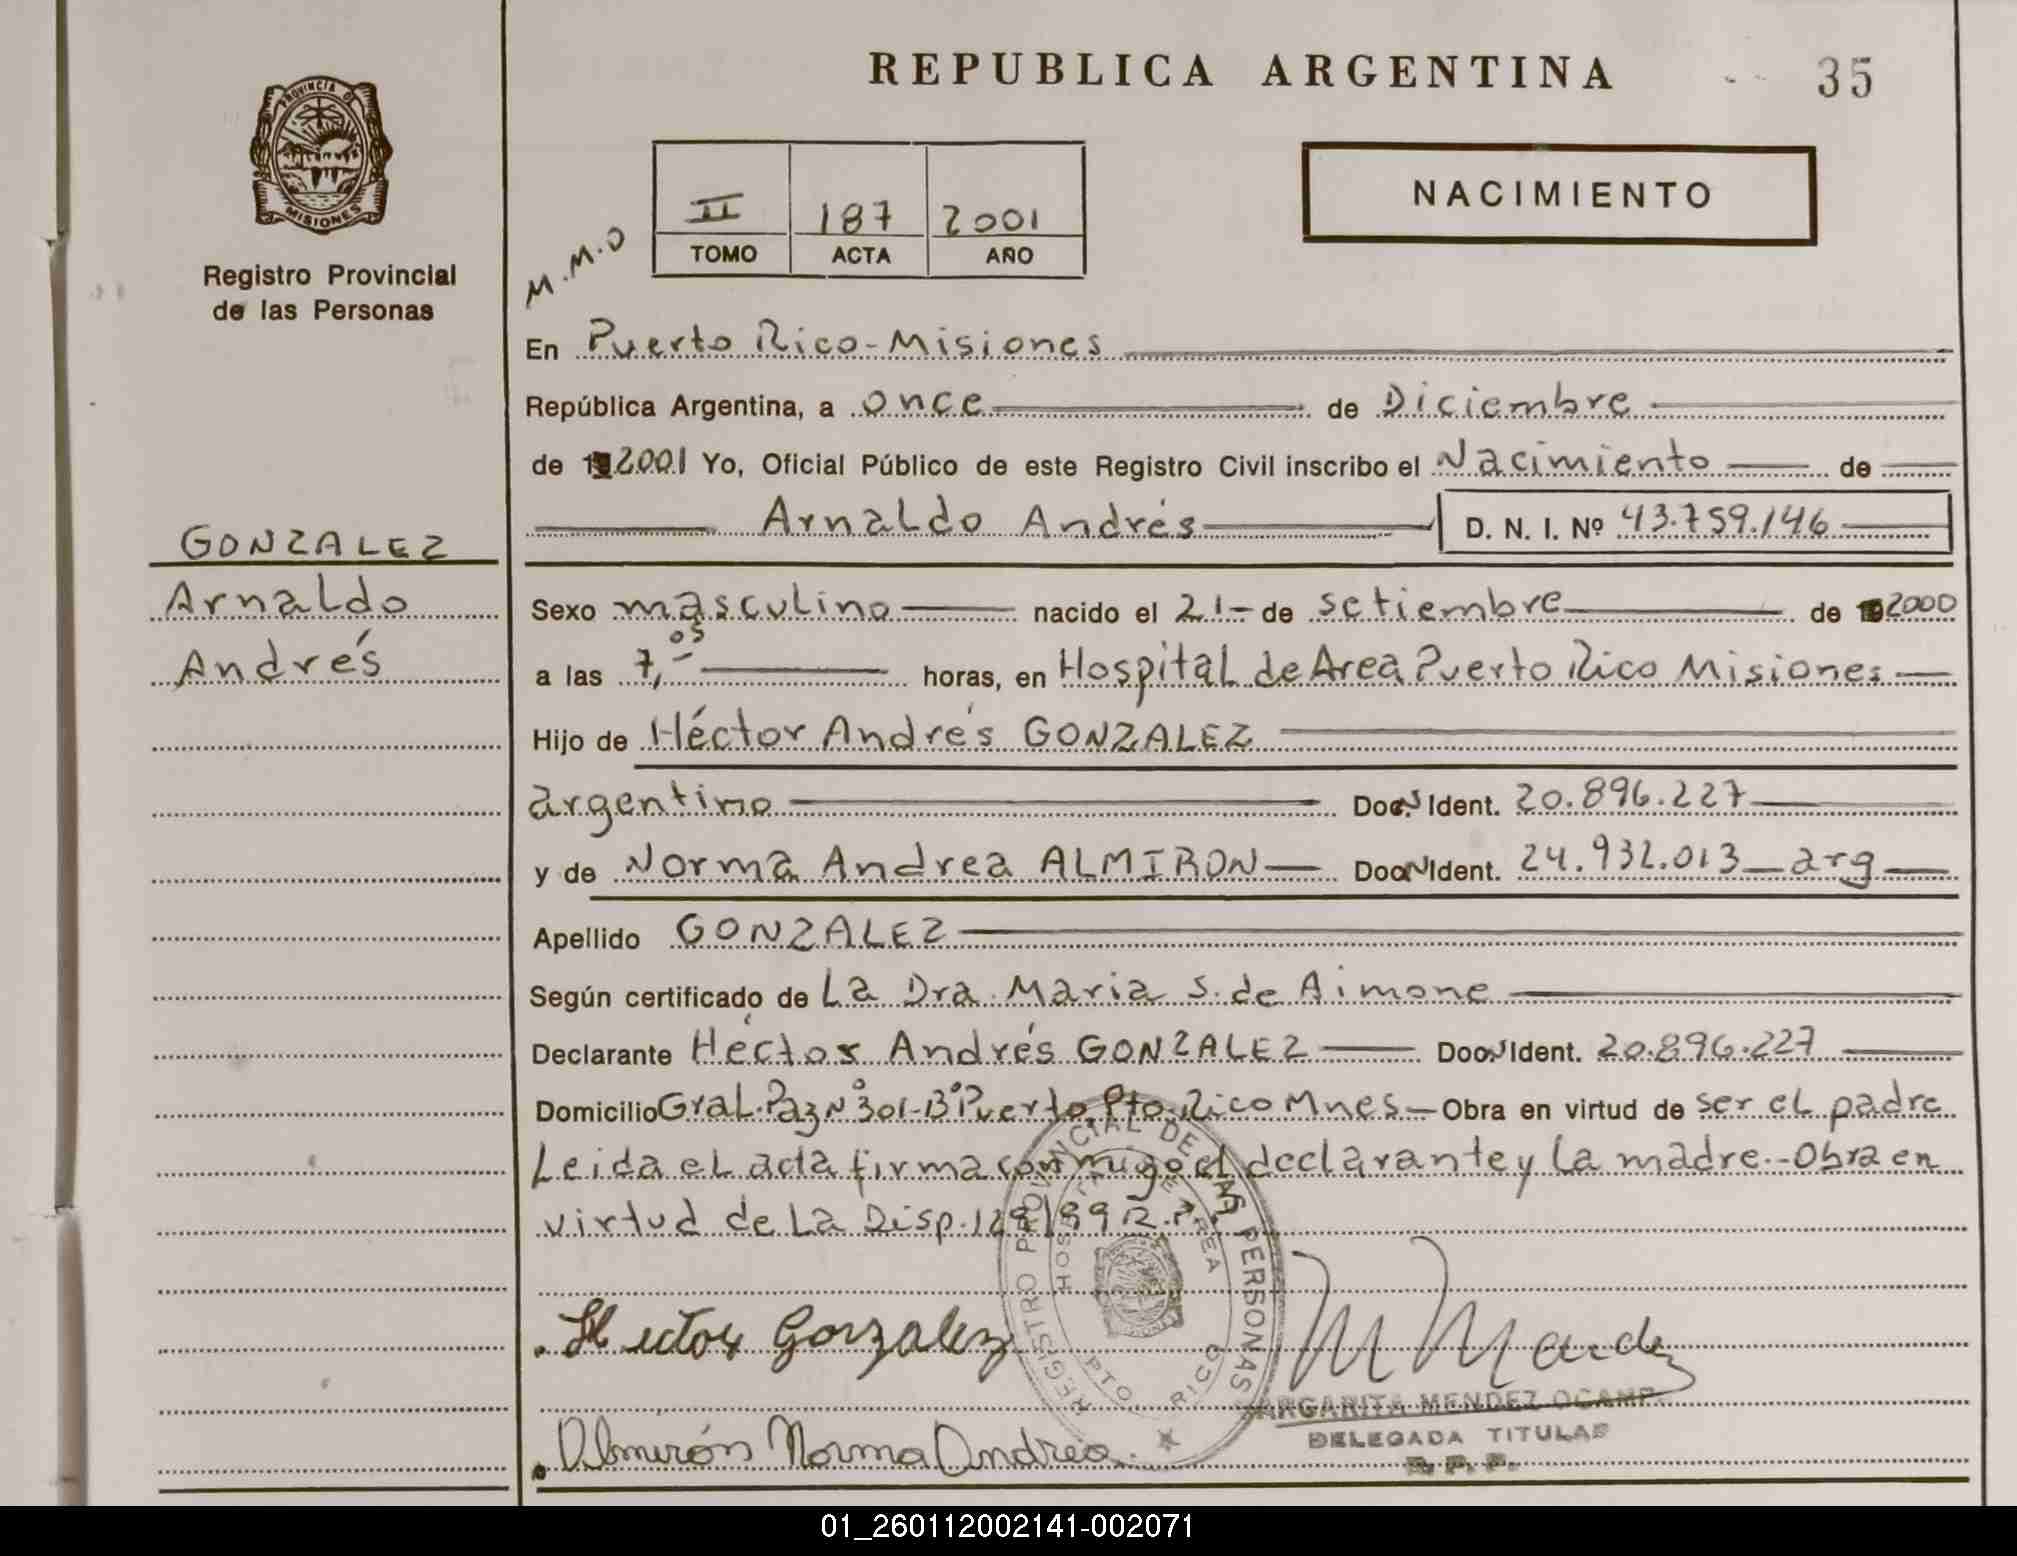 REPUBLICA ARGENTINA
35
PROVINCIA DE
MISIONES
Registro Provincial
de las Personas
II 187 2001
TOMO ACTA AÑO
NACIMIENTO
M.M.O
En Puerto Rico-Misiones
República Argentina, a once de Diciembre
de 2001 Yo, Oficial Público de este Registro Civil inscribo el Nacimiento de
Arnaldo Andrés D. N. I. Nº 43.759.146
GONZALEZ
Arnaldo
Andrés
Sexo masculino nacido el 21- de setiembre de 2000
a las 7,05 horas, en Hospital de Area Puerto Rico Misiones
Hijo de Héctor Andrés GONZALEZ
argentino Doc. Ident. 20.896.227
y de Norma Andrea ALMIRON Doc. Ident. 24.932.013 arg
Apellido GONZALEZ
Según certificado de La Dra. Maria S. de Aimone
Declarante Héctor Andrés GONZALEZ Doc. Ident. 20.896.227
Domicilio Gral. Paz Nº 301-Bº Puerto Pto. Rico Mnes Obra en virtud de ser el padre
Leida el acta firma conmigo el declarante y la madre.-Obra en
virtud de La Disp. R.P.
REGISTRO PROVINCIAL DE LAS PERSONAS
HOSPITAL DE AREA
PTO RICO
Hector Gonzalez
MARGARITA MENDEZ OCAMP
DELEGADA TITULAR
R. P. P.
Almirón Norma Andrea.
01_260112002141-002071